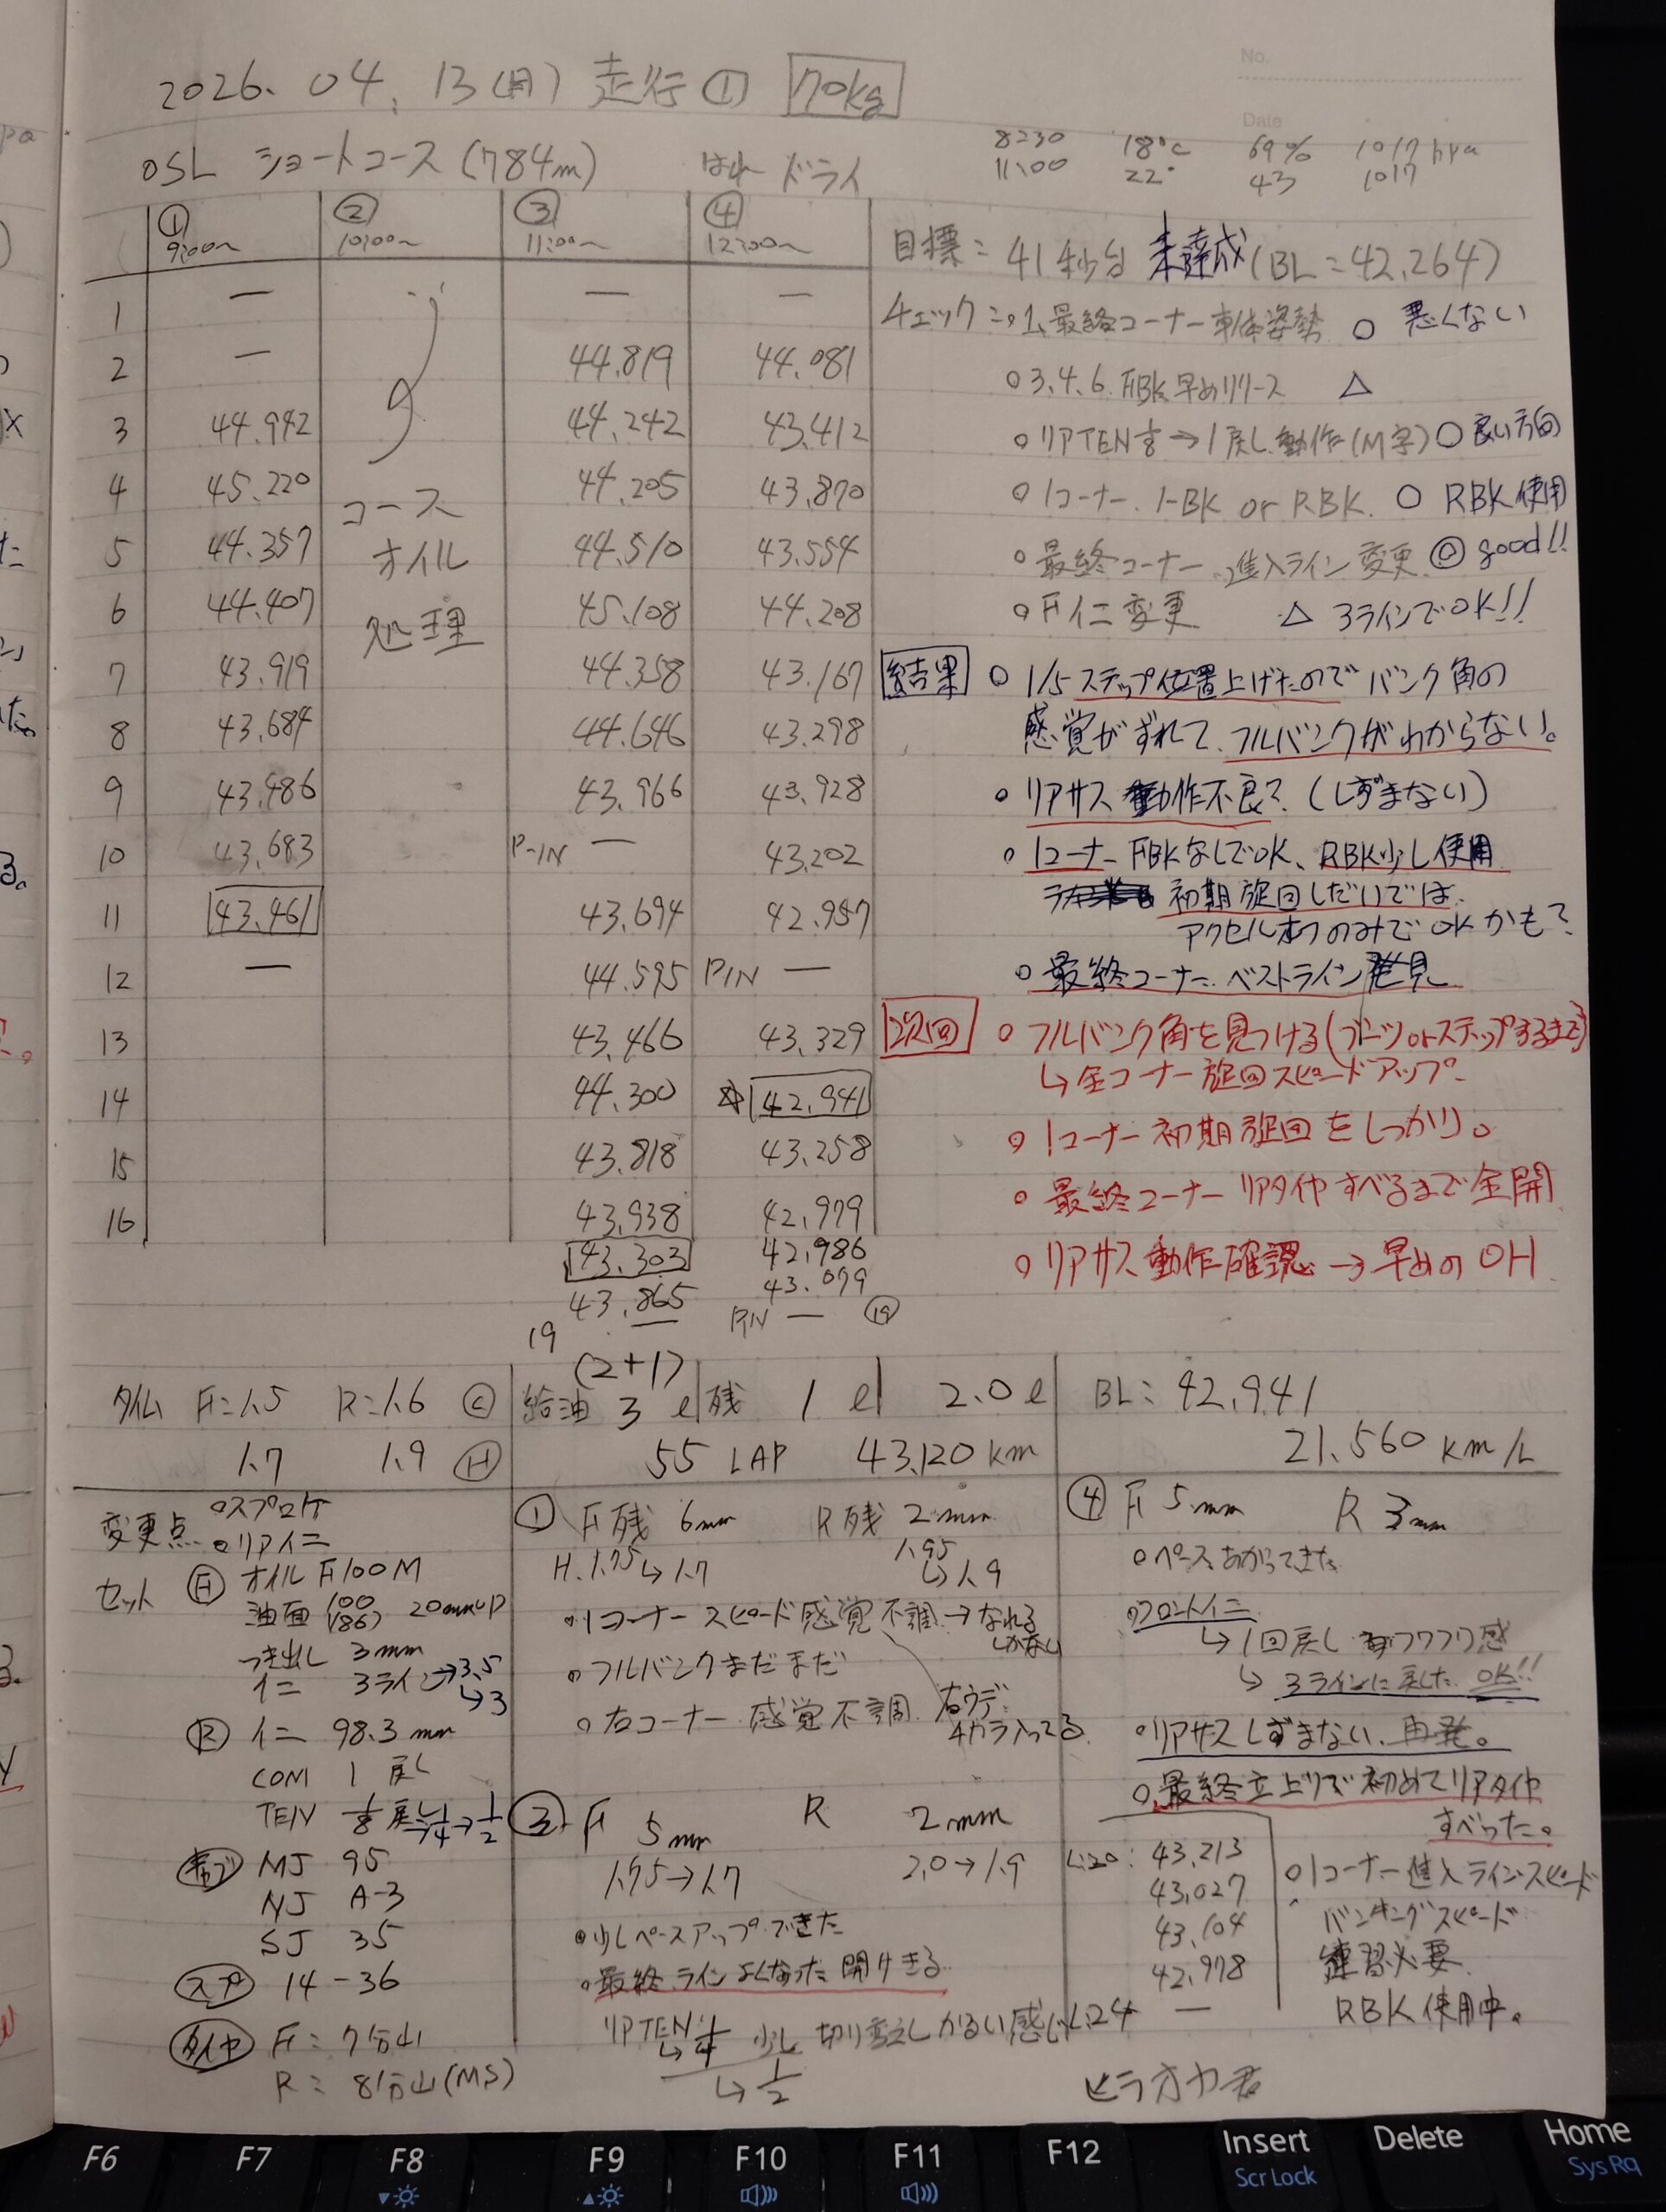 No.
Date
2026. 04. 13 (月) 走行 ① 70kg
OSL ショートコース (784m) はれ ドライ
8:30 18°C 69% 1017 hpa
11:00 22° 43 1017
① ② ③ ④
9:00~ 10:00~ 11:00~ 12:00~
目標= 41秒台 未達成 (BL=42.264)
1 — — —
2 — 44.819 44.081
3 44.942 44.242 43.412
4 45.220 44.205 43.870
5 44.357 44.510 43.554
6 44.407 45.108 44.208
7 43.919 44.358 43.167
8 43.684 44.646 43.298
9 43.486 43.966 43.928
10 43.683 P-IN — 43.202
11 43.461 43.694 42.957
12 — 44.595 PIN —
13 43.466 43.329
14 44.300 ☆ 42.941
15 43.818 43.258
16 43.938 42.979
43.303 42.986
43.865 43.079
19 — PIN — ⑲
コース
オイル
処理
チェック=。1、最終コーナー車体姿勢 ○ 悪くない
○3.4.6. FBK早めリリース △
○リアTEN 1/8→1戻し動作(M字) ○良い方向
○1コーナー. FBK or RBK. ○ RBK使用
○最終コーナー、進入ライン変更 ◎ good!!
○Fイニ変更 △ 3ラインでOK!!
結果 ○ 1/5 ステップ位置上げたのでバンク角の
感覚がずれて、フルバンクがわからない。
○リアサス動作不良?(しずまない)
○1コーナー FBKなしでOK、RBK少し使用
初期旋回しだいでは、
アクセルオフのみでOKかも?
○最終コーナー. ベストライン発見
次回 ○フルバンク角を見つける(ブーツorステップするまで)
↳全コーナー旋回スピードアップ
○1コーナー初期旋回をしっかり。
○最終コーナーリアタイヤすべるまで全開
○リアサス動作確認→早めのOH
タイム F=1.5 R=1.6 Ⓒ
1.7 1.9 Ⓗ
(2+1)
給油 3 ℓ 残 1 ℓ 2.0 ℓ
55 LAP 43.120 km
BL: 42.941
21.560 km/L
変更点 ○スプロケ
○リアイニ
セット Ⓕ オイル F100M
油面 100 (86) 20mmUP
つき出し 3mm
イニ 3ライン→3.5
↳3
Ⓡ イニ 98.3 mm
COM 1 戻し
TEN 1/8 戻し→1/4→1/2
キャブ MJ 95
NJ A-3
SJ 35
スプ 14-36
タイヤ F: 7分山
R: 8分山(MS)
① F残 6mm R残 2mm
H. 1.75↳1.7 1.95↳1.9
○1コーナースピード感覚不調→なれるしかなし
○フルバンクまだまだ
○右コーナー感覚不調. 右ウデ. チカラ入ってる
③ F 5mm R 2mm
1.75→1.7 2.0→1.9
○少しペースアップできた
○最終ラインよくなった開けきる
リアTEN 1/4 少し切り変えしかるい感じ
↳1/2
④ F 5mm R 3mm
○ペースあがってきた
○フロントイニ
↳1回戻しフワフワ感
↳3ラインに戻したOK!!
○リアサスしずまない、再発。
○最終立上りで初めてリアタイヤ
すべった。
L:20: 43.213
43.027
43.104
42.978
L:24 —
○1コーナー進入ライン・スピード
バンキングスピード
練習必要
RBK使用中。
ヒラオカ君
F6 F7 F8 F9 F10 F11 F12 Insert Delete Home
Scr Lock Sys Rq